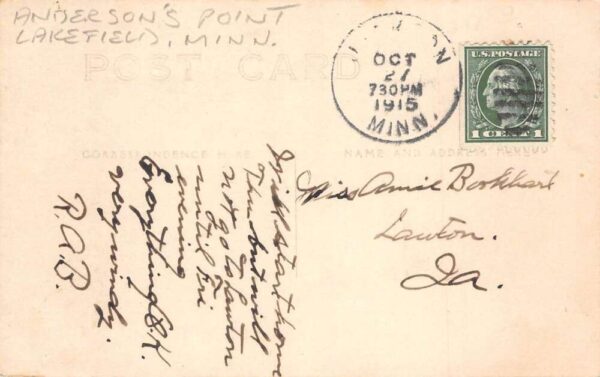 ANDERSON'S POINT
LAKEFIELD, MINN.
POST CARD
OCT
27
730PM
1915
MINN.
U.S. POSTAGE
1 CENT 1
CORRESPONDENCE HERE
NAME AND ADDRESS HERE
Will start home
Thur but will
not go to Lawton
until Fri
evening
Everything O.K.
very windy.
R.A.B.
Miss Amie Bookhart
Lawton.
Ia.